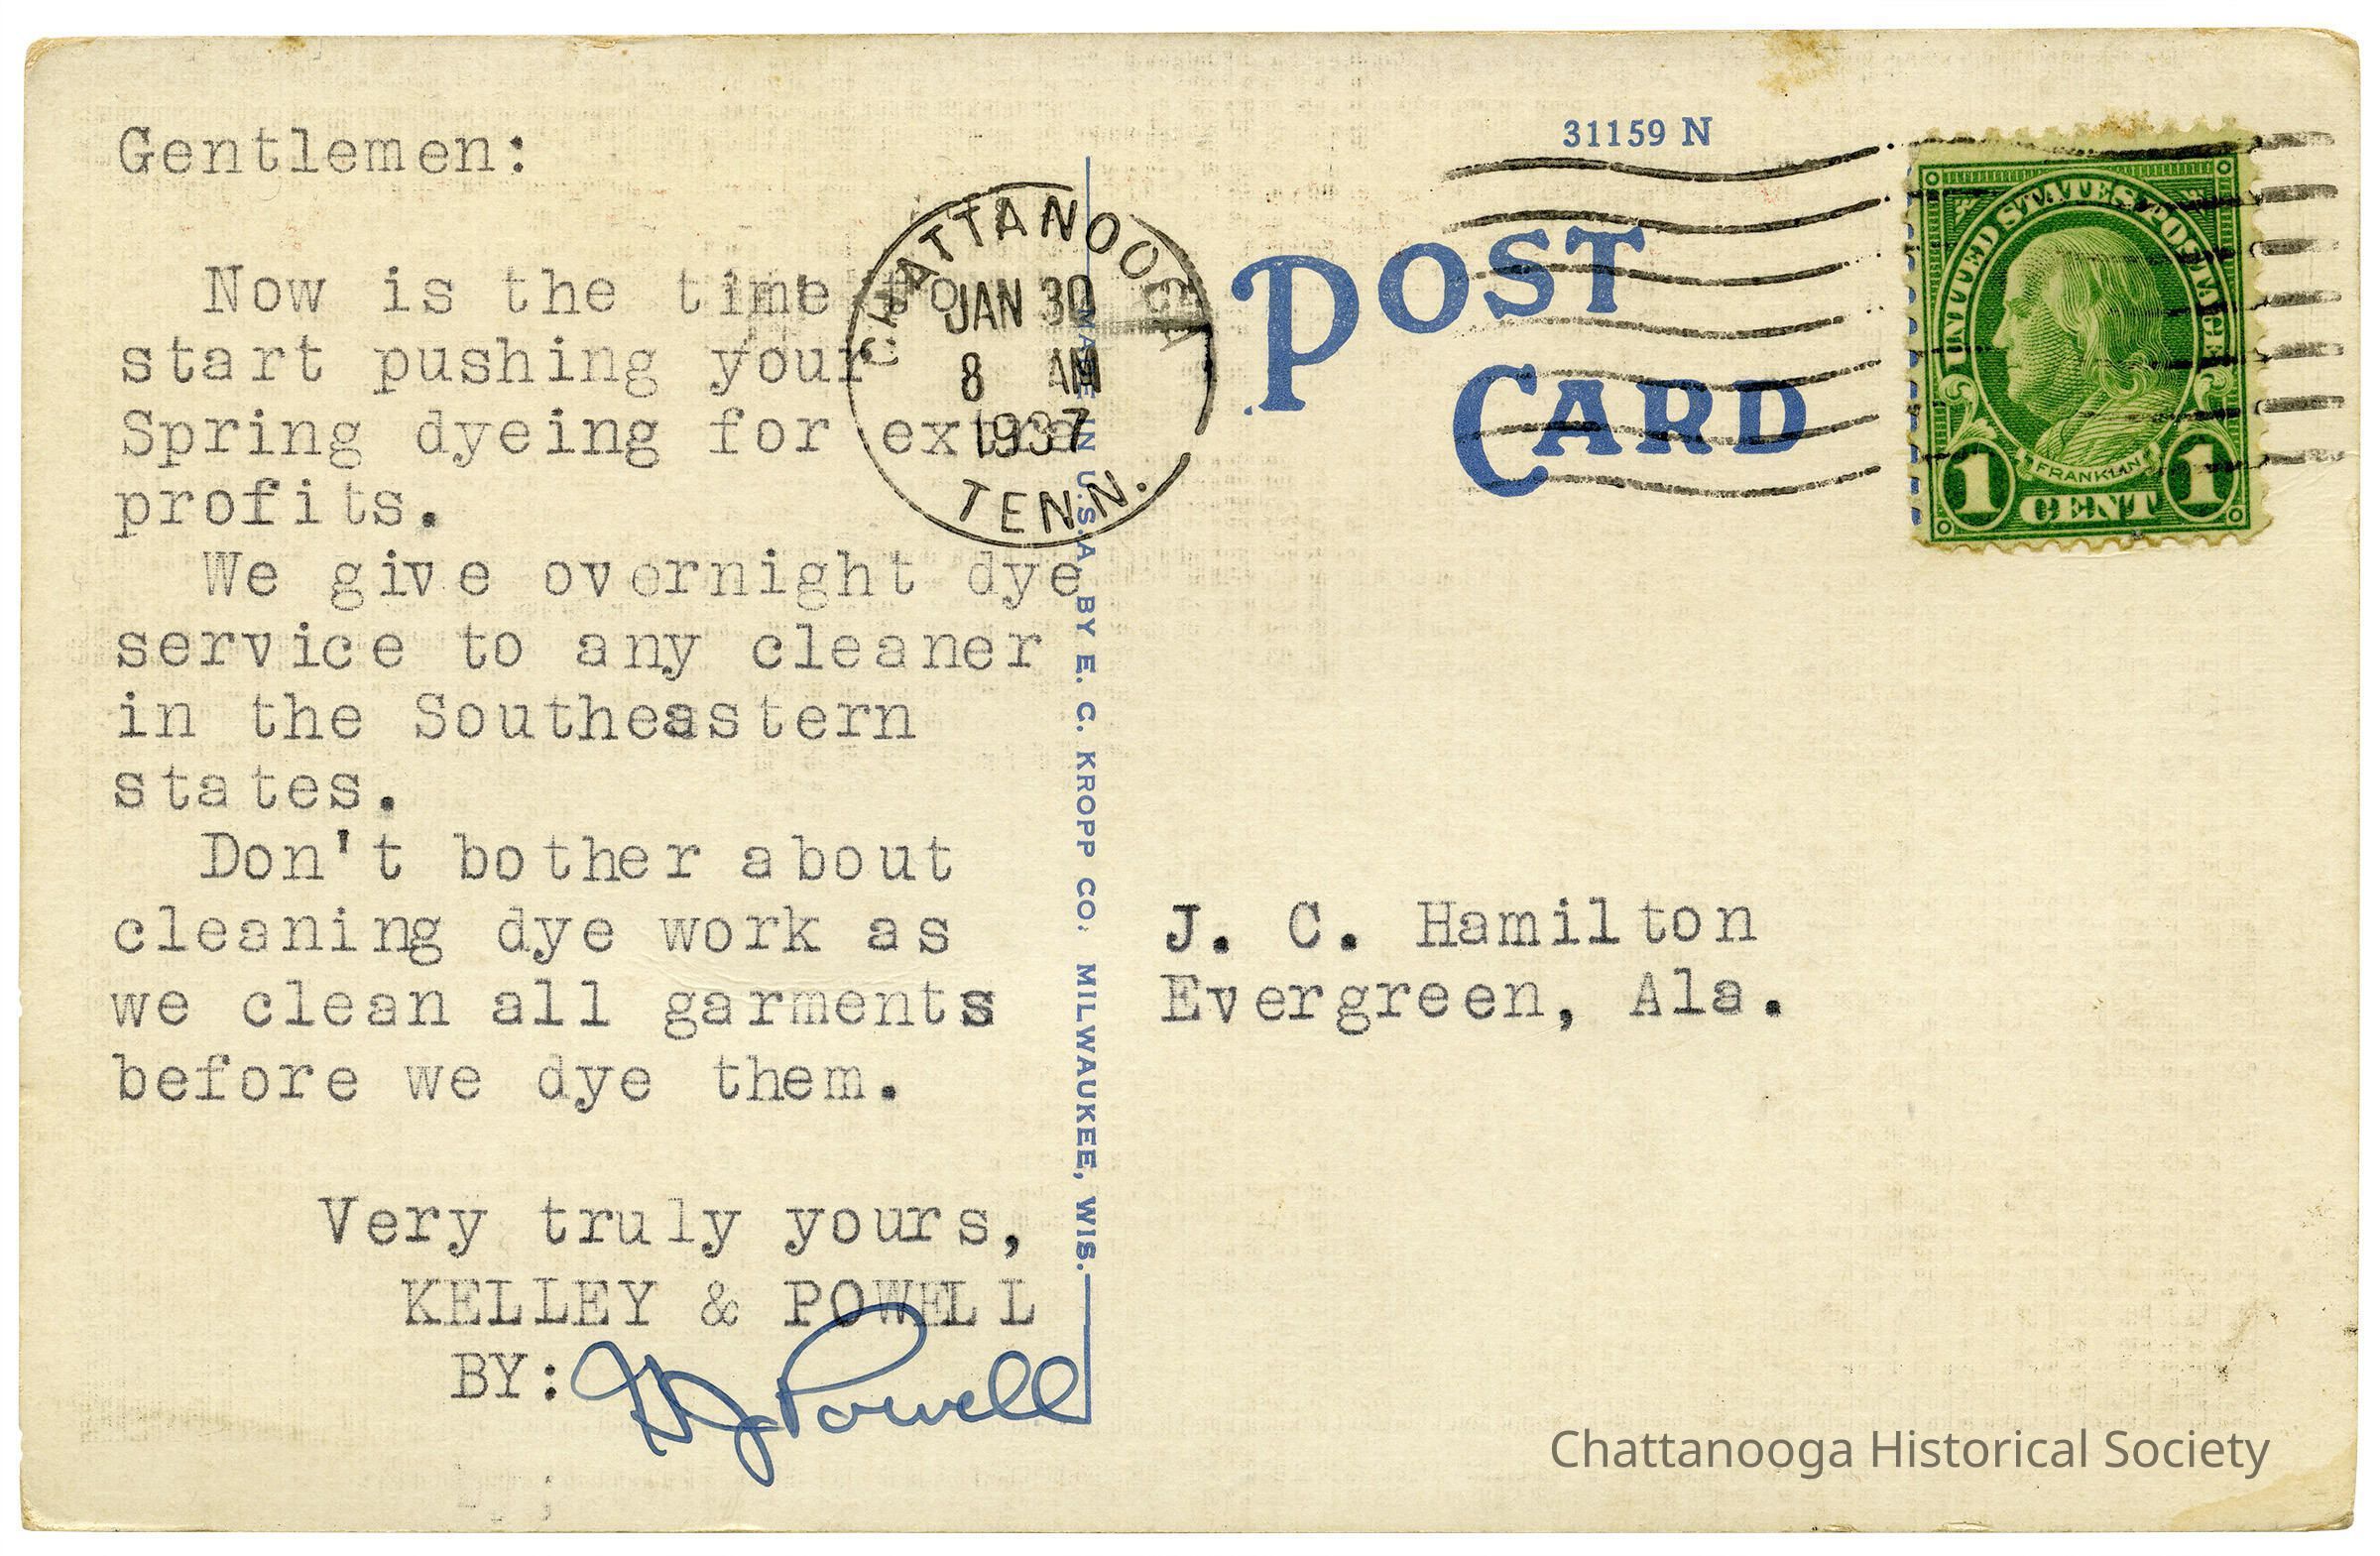 Gentlemen:
Now is the time to
start pushing your
Spring dyeing for extra
profits.
We give overnight dye
service to any cleaner
in the Southeastern
states.
Don't bother about
cleaning dye work as
we clean all garments
before we dye them.
Very truly yours,
KELLEY & POWELL
BY: Powell
CHATTANOOGA
JAN 30
8 AM
1937
TENN.
MADE IN U.S.A. BY E. C. KROPP CO. MILWAUKEE, WIS.
31159 N
POST
CARD
UNITED STATES POSTAGE
FRANKLIN
1 CENT 1
J. C. Hamilton
Evergreen, Ala.
Chattanooga Historical Society